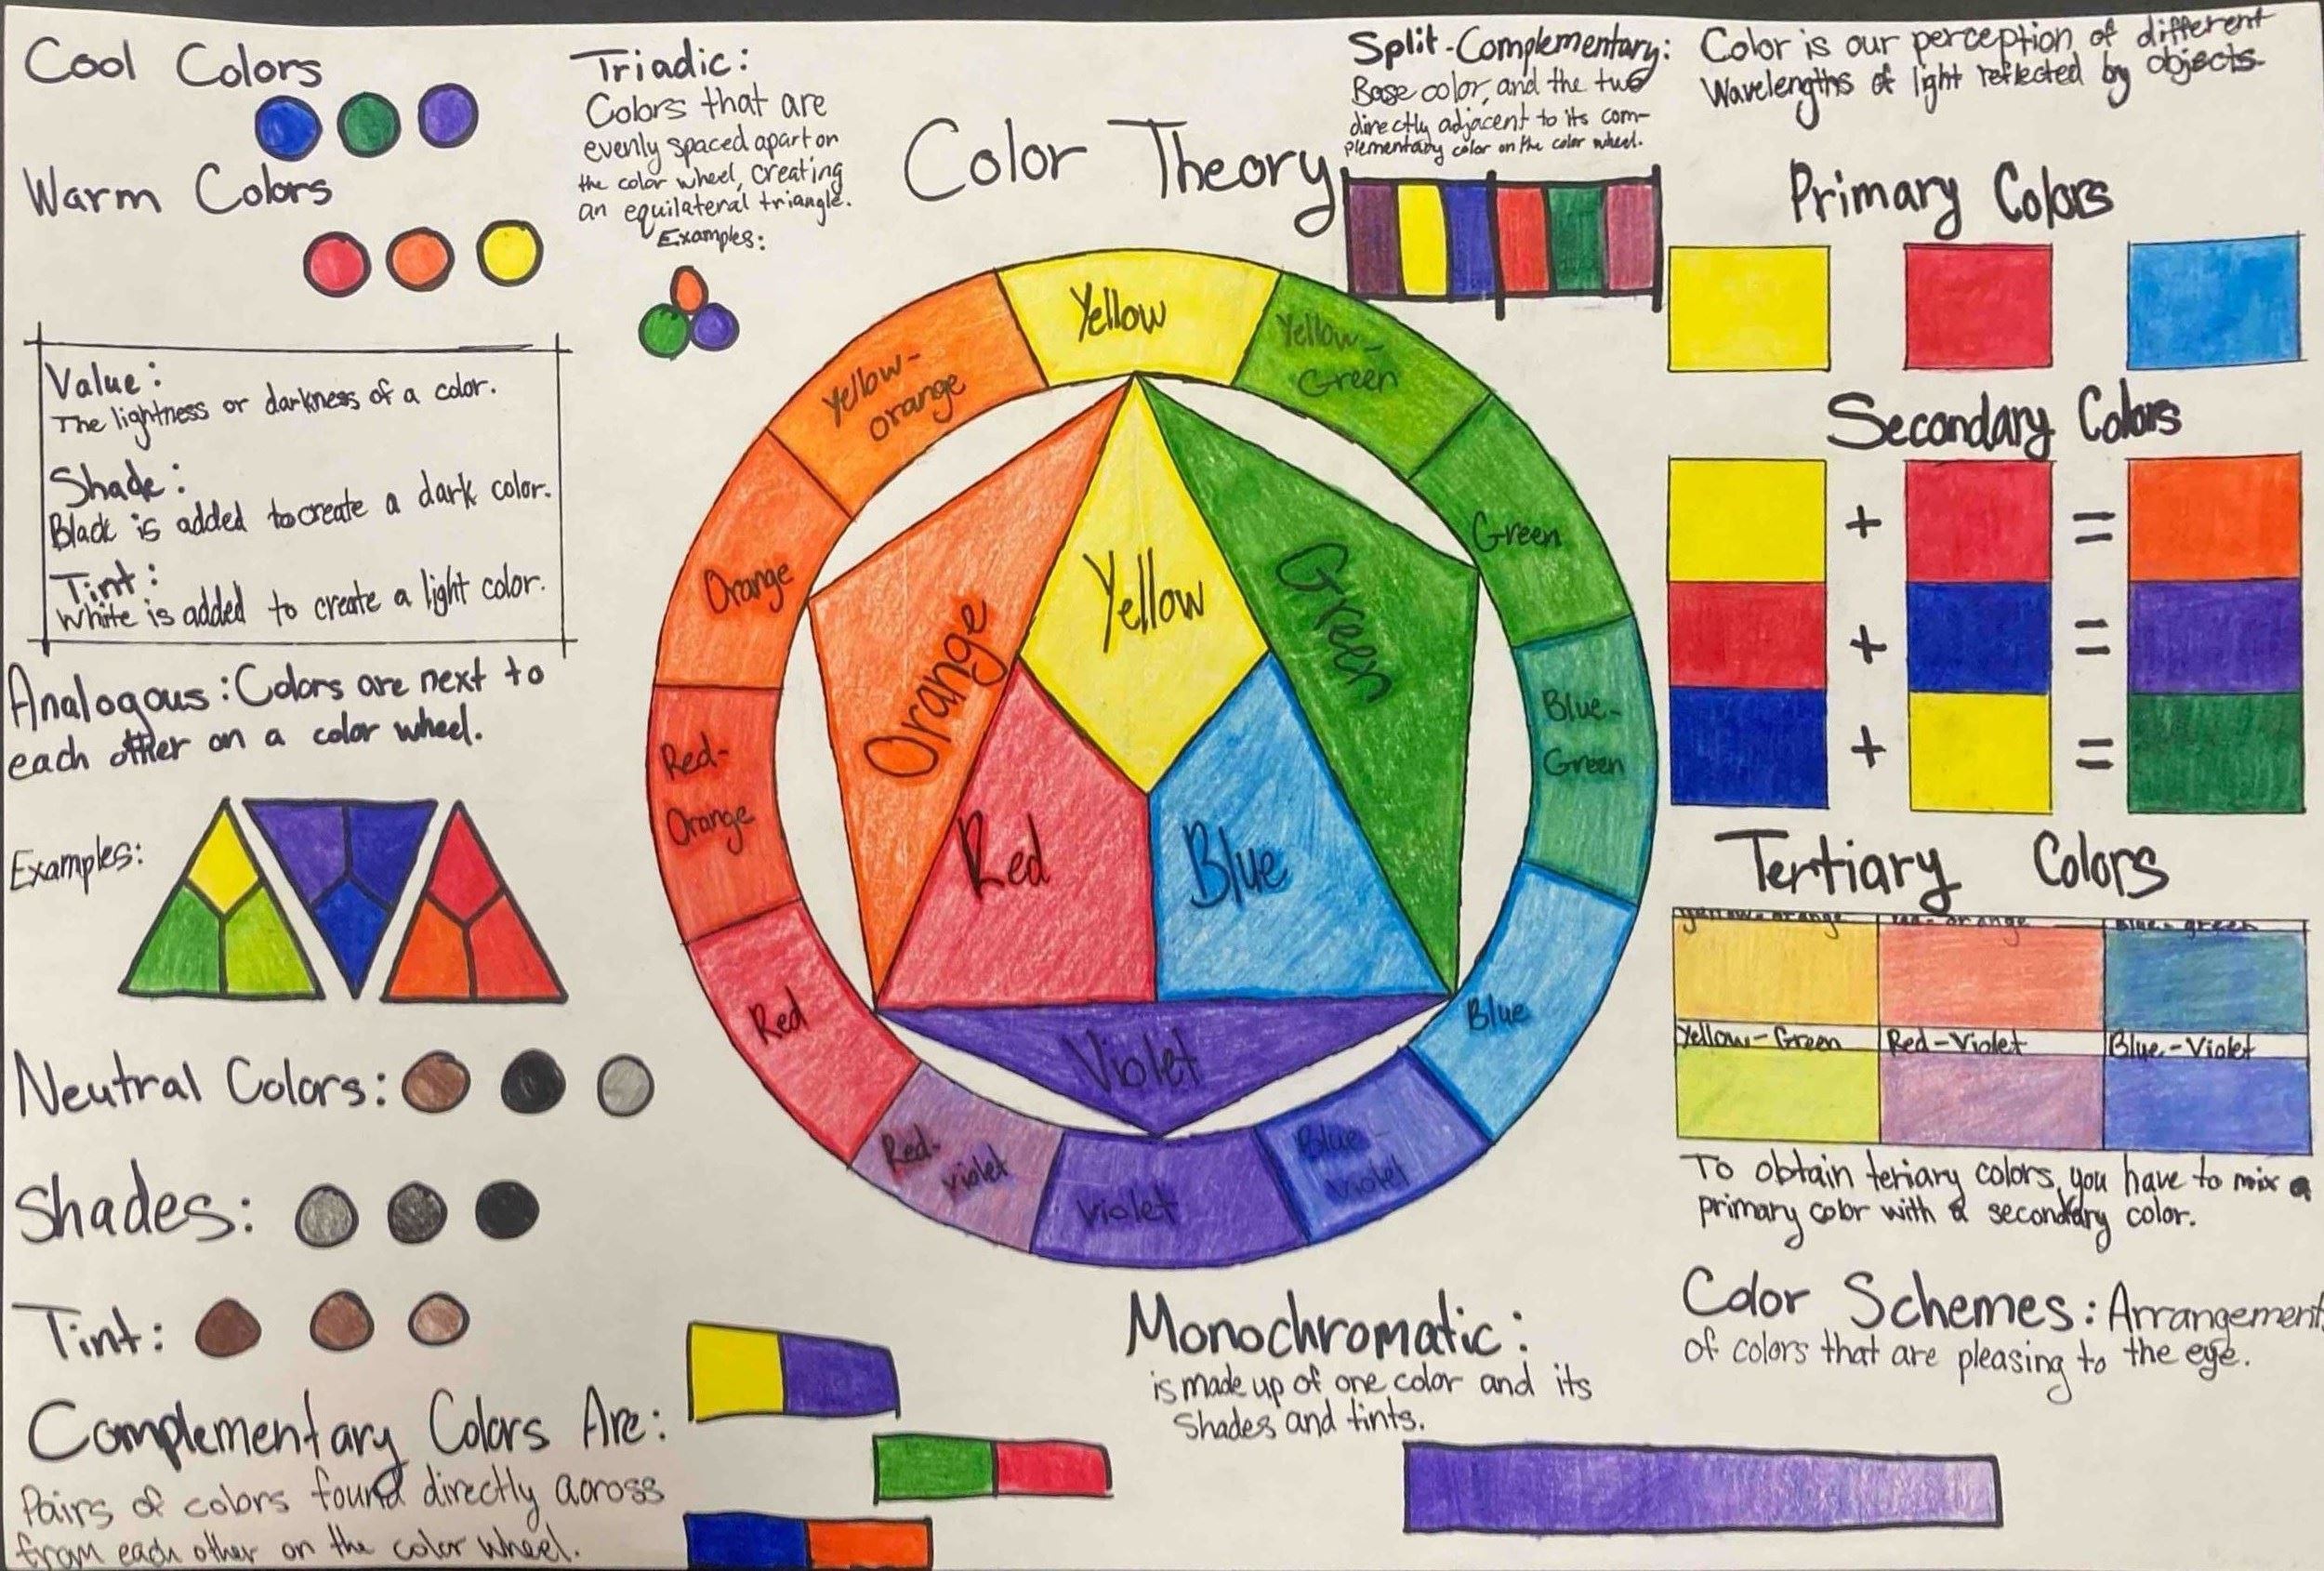 Cool Colors
Warm Colors
Value:
The lightness or darkness of a color.
Shade:
Black is added to create a dark color.
Tint:
White is added to create a light color.
Analogous: Colors are next to
each other on a color wheel.
Examples:
Neutral Colors:
Shades:
Tint:
Complementary Colors Are:
Pairs of colors found directly across
from each other on the color wheel.
Triadic:
Colors that are
evenly spaced apart on
the color wheel, creating
an equilateral triangle.
Examples:
Color Theory
Yellow
Yellow-
Green
Green
Blue-
Green
Blue
Blue-
Violet
Violet
Red-
violet
Red
Red-
Orange
Orange
Yellow-
orange
Yellow
Green
Blue
Violet
Red
Orange
Monochromatic:
is made up of one color and its
Shades and tints.
Split-Complementary:
Base color, and the two
directly adjacent to its com-
plementary color on the color wheel.
Color is our perception of different
Wavelengths of light reflected by objects.
Primary Colors
Secondary Colors
+ =
+ =
+ =
Tertiary Colors
Yellow-orange red-orange Blue-green
Yellow-Green Red-Violet Blue-Violet
To obtain teriary colors, you have to mix a
primary color with a secondary color.
Color Schemes: Arrangement
of colors that are pleasing to the eye.